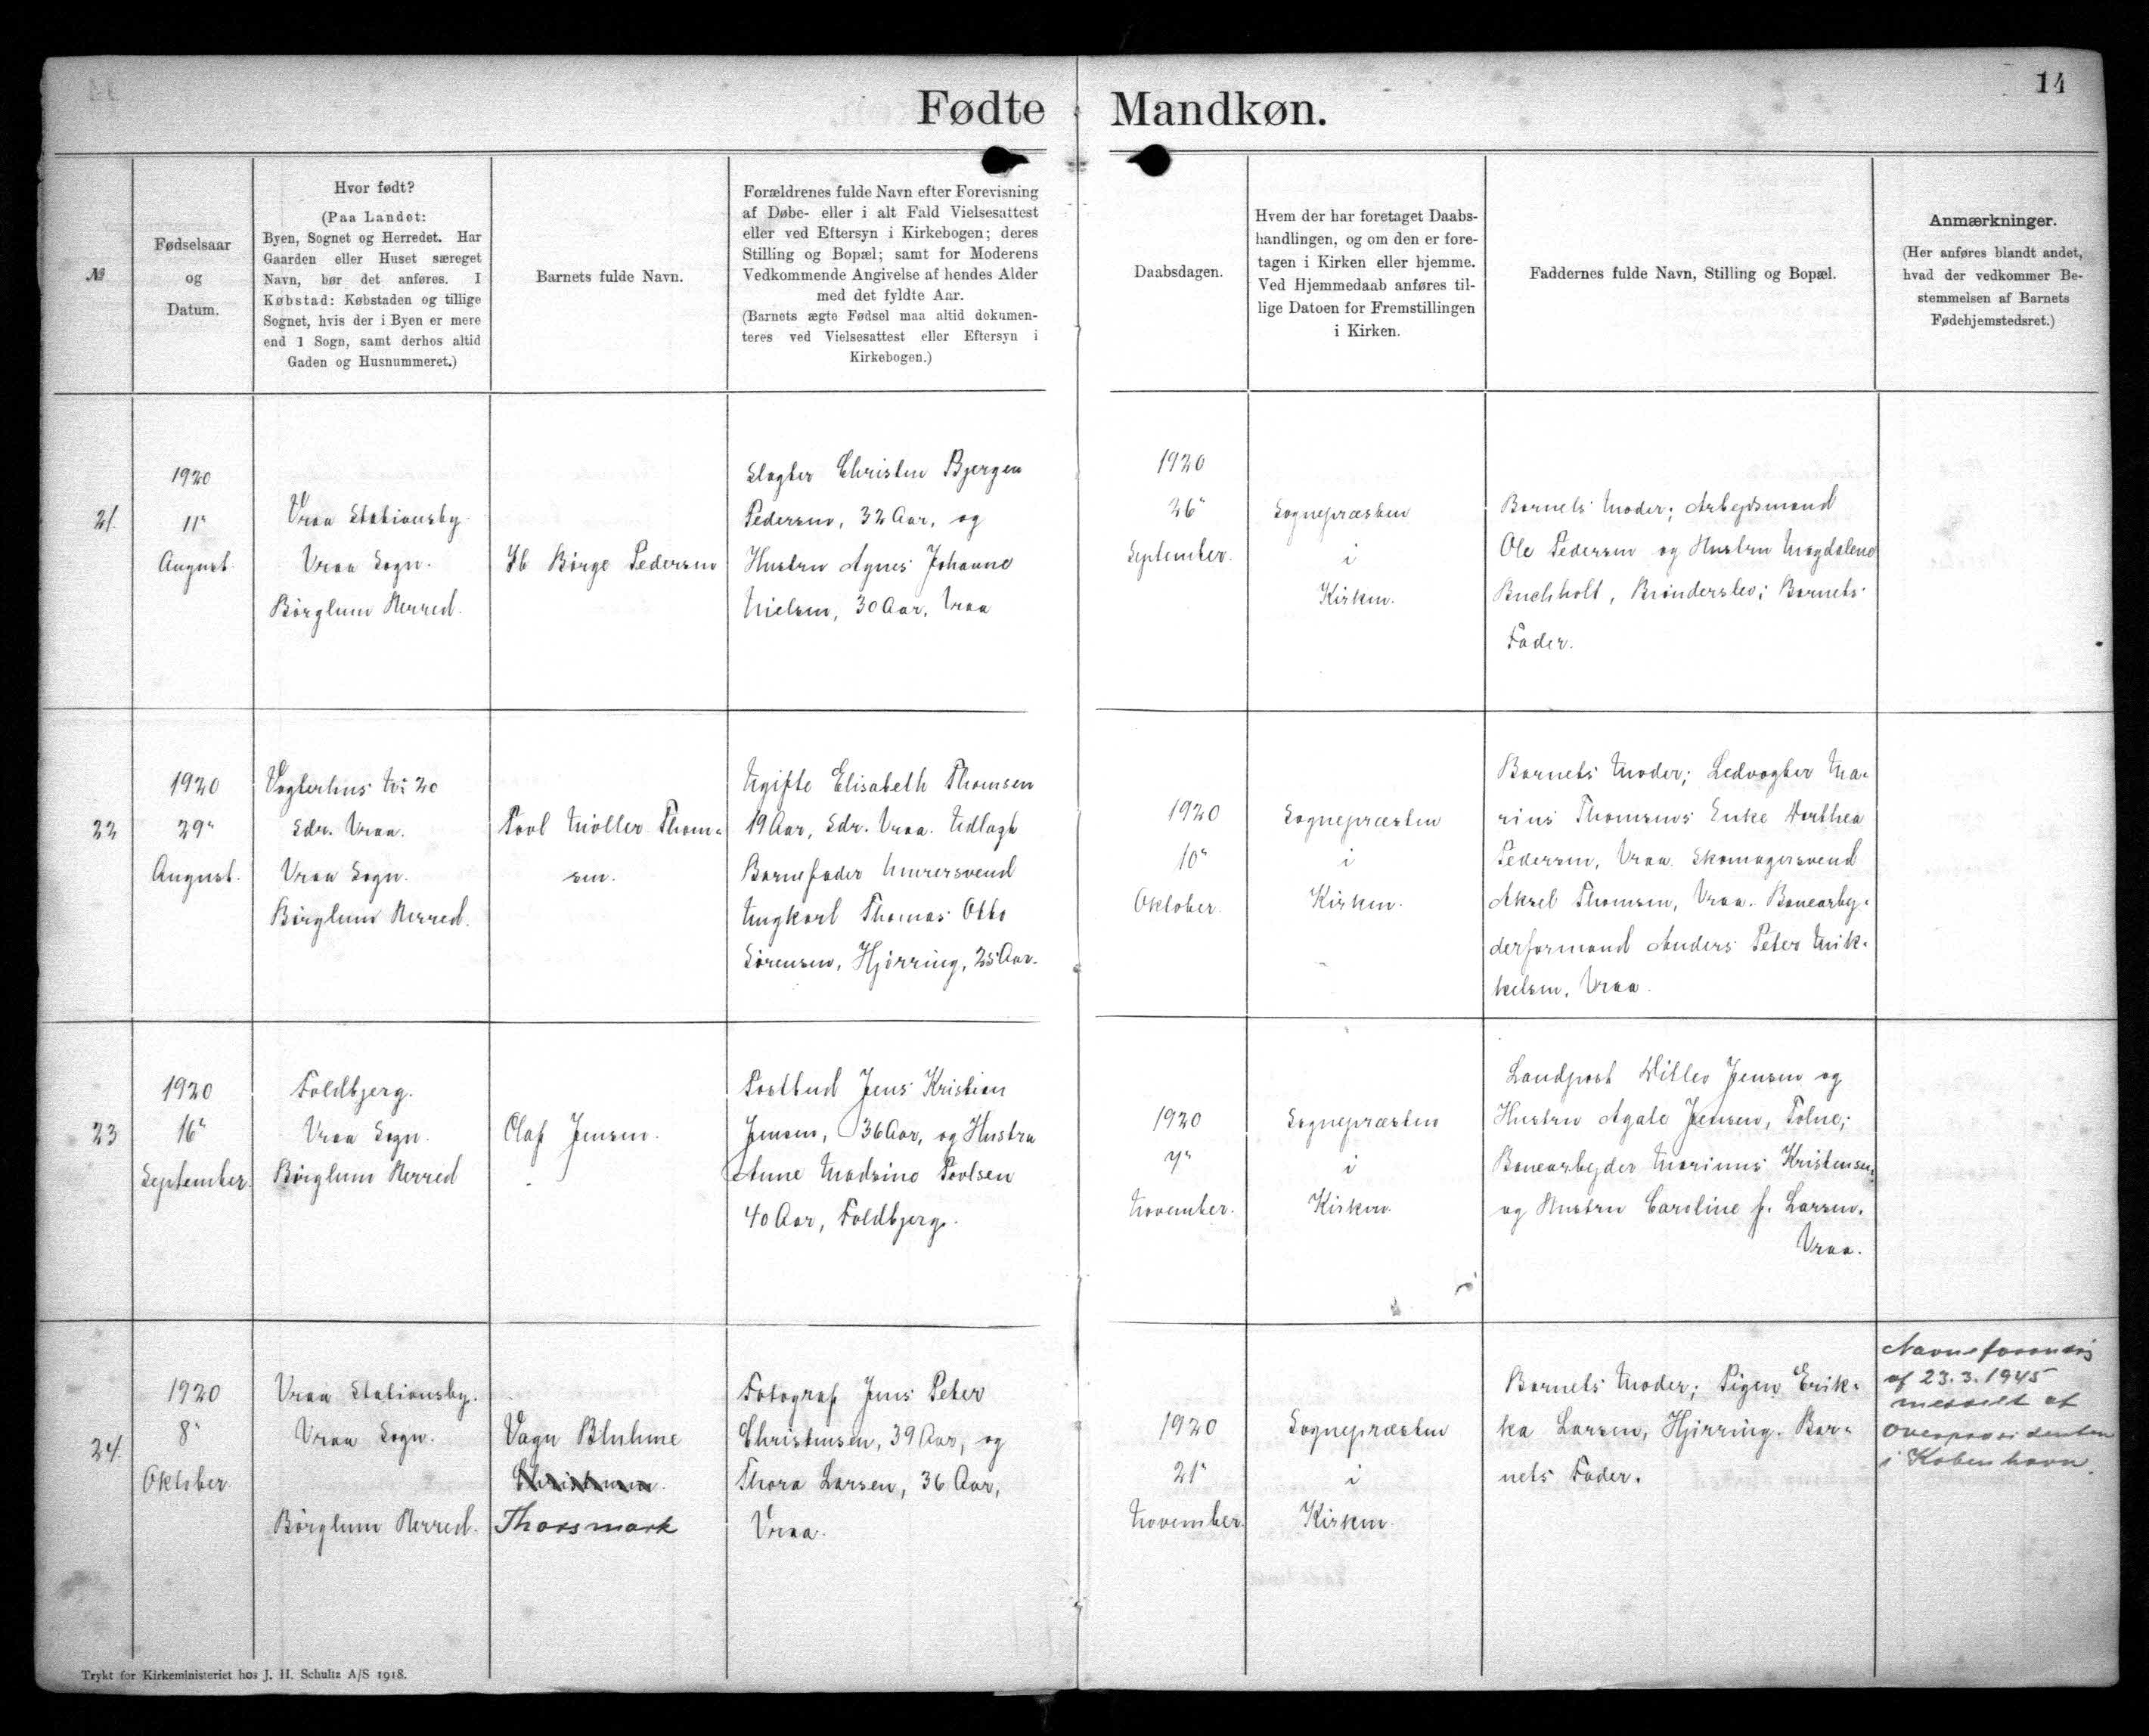 14
Fødte Mandkøn.
№
Fødselsaar
og
Datum.
Hvor født?
(Paa Landet:
Byen, Sognet og Herredet. Har
Gaarden eller Huset særeget
Navn, bør det anføres. I
Købstad: Købstaden og tillige
Sognet, hvis der i Byen er mere
end 1 Sogn, samt derhos altid
Gaden og Husnummeret.)
Barnets fulde Navn.
Forældrenes fulde Navn efter Forevisning
af Døbe- eller i alt Fald Vielsesattest
eller ved Eftersyn i Kirkebogen; deres
Stilling og Bopæl; samt for Moderens
Vedkommende Angivelse af hendes Alder
med det fyldte Aar.
(Barnets ægte Fødsel maa altid dokumen-
teres ved Vielsesattest eller Eftersyn i
Kirkebogen.)
Daabsdagen.
Hvem der har foretaget Daabs-
handlingen, og om den er fore-
tagen i Kirken eller hjemme.
Ved Hjemmedaab anføres til-
lige Datoen for Fremstillingen
i Kirken.
Faddernes fulde Navn, Stilling og Bopæl.
Anmærkninger.
(Her anføres blandt andet,
hvad der vedkommer Be-
stemmelsen af Barnets
Fødehjemstedsret.)
21.
1920
11"
August.
Vraa Stationsby.
Vraa Sogn.
Börglum Herred.
Ib Börge Pedersen
Slagter Christen Bjergen
Pedersen, 32 Aar, og
Hustru Agnes Johanne
Nielsen, 30 Aar, Vraa
1920
26"
September.
Sognepræsten
i
Kirken.
Barnets Moder; Arbejdsmand
Ole Pedersen og Hustru Magdalene
Buchholt, Brönderslev; Barnets
Fader.
22
1920
29"
August.
Vogterhus No 20
Sdr. Vraa.
Vraa Sogn.
Börglum Herred.
Povl Möller Thom-
sen.
Ugifte Elisabeth Thomsen
19 Aar, Sdr. Vraa. Udlagt
Barnefader Murersvend
Ungkarl Thomas Otto
Sörensen, Hjörring, 25 Aar.
1920
10"
Oktober.
Sognepræsten
i
Kirken.
Barnets Moder; Ledvogter Ma-
rius Thomsens Enke Dorthea
Pedersen, Vraa. Skomagersvend
Aksel Thomsen, Vraa. Banearbej-
derformand Anders Peter Mik-
kelsen, Vraa.
23
1920
16"
September.
Foldbjerg.
Vraa Sogn.
Börglum Herred
Olaf Jensen.
Postbud Jens Kristian
Jensen, 36 Aar, og Hustru
Anne Madsine Povlsen
40 Aar, Foldbjerg.
1920
7"
November.
Sognepræsten
i
Kirken.
Landpost Ditlev Jensen og
Hustru Agate Jensen, Tolne;
Banearbejder Marinus Kristensen
og Hustru Caroline f. Larsen.
Vraa.
24.
1920
8"
Oktober
Vraa Stationsby.
Vraa Sogn.
Börglum Herred.
Vagn Bluhme
Christensen.
Thorsmark
Fotograf Jens Peter
Christensen, 39 Aar, og
Thora Larsen, 36 Aar,
Vraa.
1920
21"
November.
Sognepræsten
i
Kirken.
Barnets Moder; Pigen Erik-
ka Larsen, Hjörring. Bar-
nets Fader.
af 23.3.1945
meddelt af
Overpræsidenten
i København.
Trykt for Kirkeministeriet hos J. H. Schultz A/S 1918.